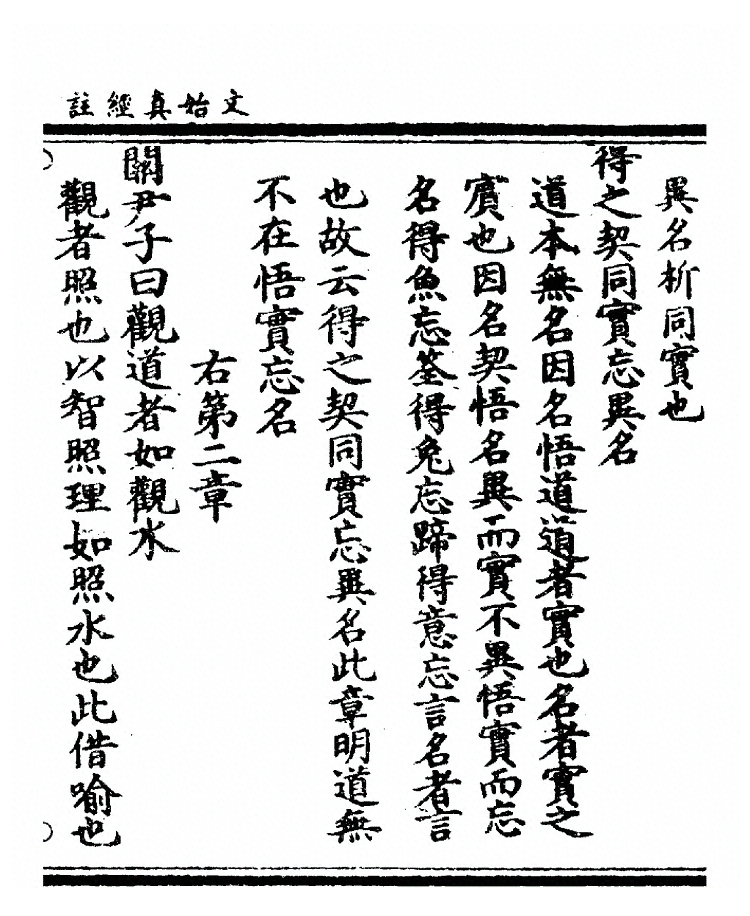 文始真經註
異名析同實也
得之契同實忘異名
道本無名因名悟道道者實也名者實之
賓也因名契悟名異而實不異悟實而忘
名得魚忘筌得兔忘蹄得意忘言名者言
也故云得之契同實忘異名此章明道無
不在悟實忘名
右第二章
關尹子曰觀道者如觀水
觀者照也以智照理如照水也此借喻也